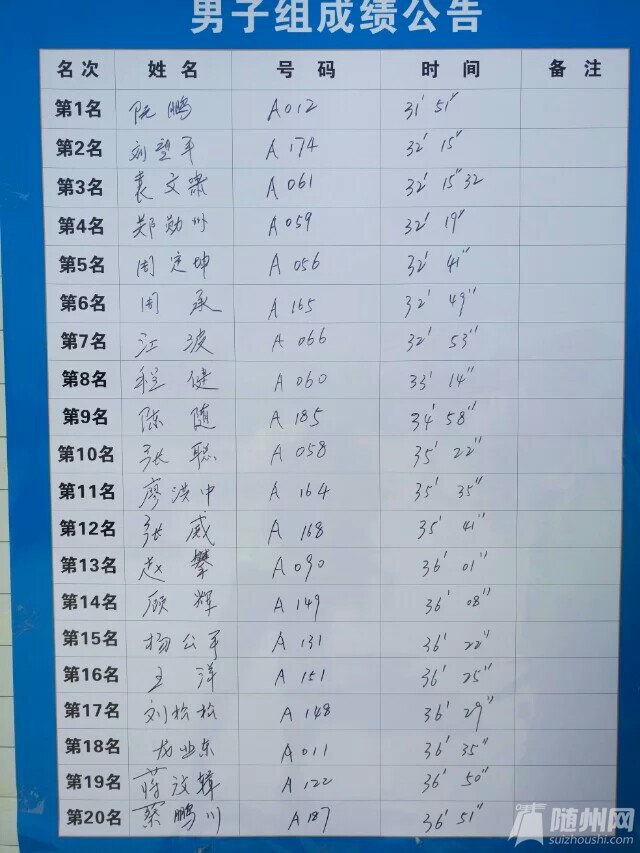 男子组成绩公告
名次 姓名 号码 时间 备注
第1名 阮鹏 A012 31′51″
第2名 刘望军 A174 32′15″
第3名 袁文肃 A061 32′15″32
第4名 郑勋外 A059 32′19″
第5名 周定坤 A056 32′41″
第6名 周承 A165 32′49″
第7名 江波 A066 32′53″
第8名 程健 A060 33′14″
第9名 陈随 A185 34′58″
第10名 张聪 A058 35′22″
第11名 廖洪中 A164 35′35″
第12名 张威 A168 35′41″
第13名 赵攀 A090 36′01″
第14名 顾辉 A149 36′08″
第15名 杨公军 A131 36′22″
第16名 王洋 A151 36′25″
第17名 刘松松 A148 36′29″
第18名 A011 36′35″
第19名 A122 36′50″
第20名 蔡鹏川 A187 36′51″
随州网
suizhoushi.com